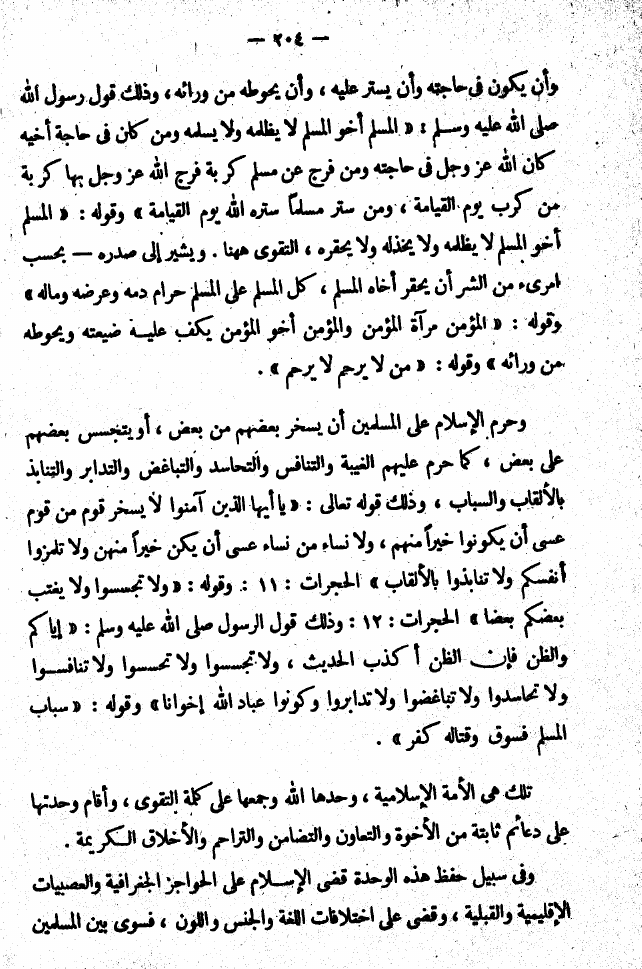 — ٢٠٤ —
وأن يكون فى حاجته وأن يستر عليه ، وأن يحوطه من ورائه ، وذلك قول رسول الله
صلى الله عليه وسلم : « المسلم أخو المسلم لا يظلمه ولا يسلمه ومن كان فى حاجة أخيه
كان الله عز وجل فى حاجته ومن فرج عن مسلم كربة فرج الله عز وجل بها كربة
من كرب يوم القيامة ، ومن ستر مسلماً ستره الله يوم القيامة » وقوله : « المسلم
أخو المسلم لا يظلمه ولا يخذله ولا يحقره ، التقوى ههنا . ويشير إلى صدره — بحسب
امرىء من الشر أن يحقر أخاه المسلم ، كل المسلم على المسلم حرام دمه وعرضه وماله »
وقوله : « المؤمن مرآة المؤمن والمؤمن أخو المؤمن يكف عليه ضيعته ويحوطه
من ورائه » وقوله : « من لا يرحم لا يرحم » .
وحرم الإسلام على المسلمين أن يسخر بعضهم من بعض ، أو يتجسس بعضهم
على بعض ، كما حرم عليهم الغيبة والتنافس والتحاسد والتباغض والتدابر والتنابذ
بالألقاب والسباب ، وذلك قوله تعالى : « يا أيها الذين آمنوا لا يسخر قوم من قوم
عسى أن يكونوا خيراً منهم ، ولا نساء من نساء عسى أن يكن خيراً منهن ولا تلمزوا
أنفسكم ولا تنابذوا بالألقاب » الحجرات : ١١ : وقوله : « ولا تجسسوا ولا يغتب
بعضكم بعضا » الحجرات : ١٢ : وذلك قول الرسول صلى الله عليه وسلم : « إياكم
والظن فإن الظن أكذب الحديث ، ولا تجسسوا ولا تحسسوا ولا تنافسوا
ولا تحاسدوا ولا تباغضوا ولا تدابروا وكونوا عباد الله إخوانا » وقوله : « سباب
المسلم فسوق وقتاله كفر » .
تلك هى الأمة الإسلامية ، وحدها الله وجمعها على كلمة التقوى ، وأقام وحدتها
على دعائم ثابتة من الأخوة والتعاون والتضامن والتراحم والأخلاق الكريمة .
وفى سبيل حفظ هذه الوحدة قضى الإسلام على الحواجز الجغرافية والعصبيات
الإقليمية والقبلية ، وقضى على اختلافات اللغة والجنس واللون ، فسوى بين المسلمين